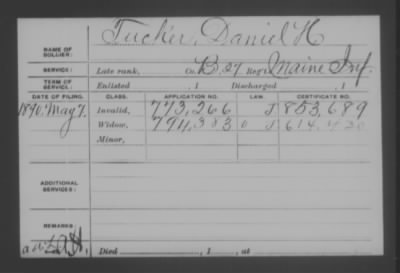 Tucker, Daniel H
NAME OF SOLDIER:
SERVICE: Late rank, Co. B, 27 Reg't Maine Inf.
TERM OF SERVICE: Enlisted , 1 Discharged , 1
DATE OF FILING. CLASS. APPLICATION NO. LAW. CERTIFICATE NO.
1890. May 7. Invalid, 743,266 J 853,689
Widow, 794,383 J 614,430
Minor,
ADDITIONAL SERVICES:
REMARKS:
Died , 1 , at